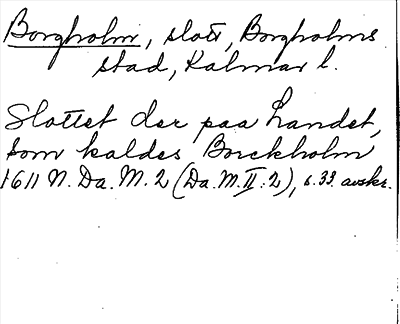 Borgholm, slott, Borgholms
stad, Kalmar l.
Slottet der paa Landet,
som kaldes Borckholm
1611 N. Da. M. 2 (Da. M. II: 2), s. 33. avskr.